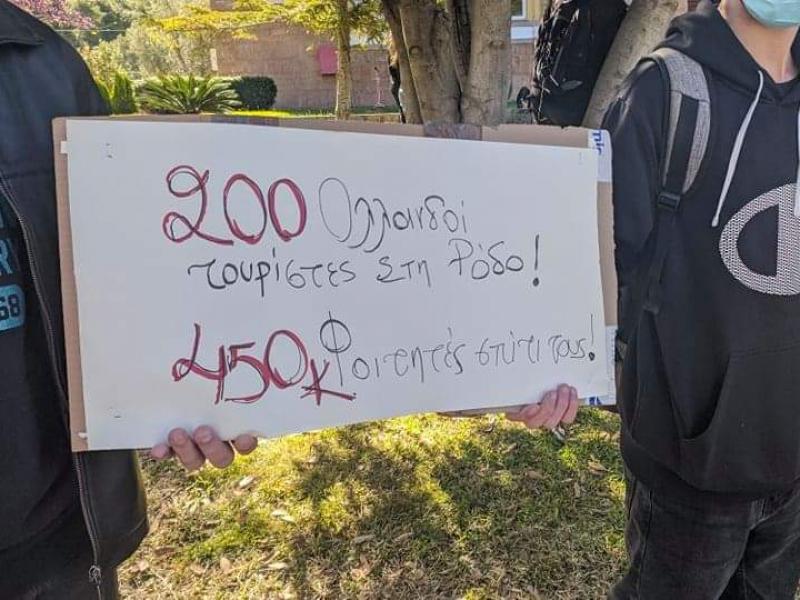 200 Ολλανδοί
τουρίστες στη Ρόδο!
450κ Φοιτητές σπίτι τους!
68